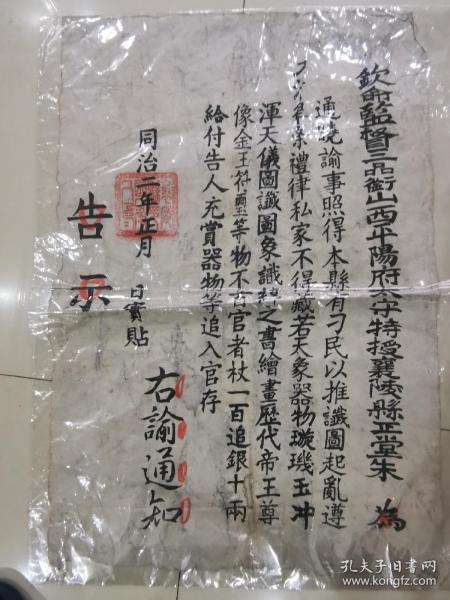 欽命監督三品銜山西平陽府太守特授襄陵縣正堂朱 為
通曉諭事照得本縣有刁民以推讖圖起亂遵
禮律私家不得藏若天象器物璇璣玉冲
渾天儀圖讖圖象讖緯之書繪畫歷代帝王尊
像金玉符璽等物不首官者杖一百追銀十兩
給付告人充賞器物等追入官存
右諭通知
同治二年正月 日實貼
告示
孔夫子旧书网
www.kongfz.com